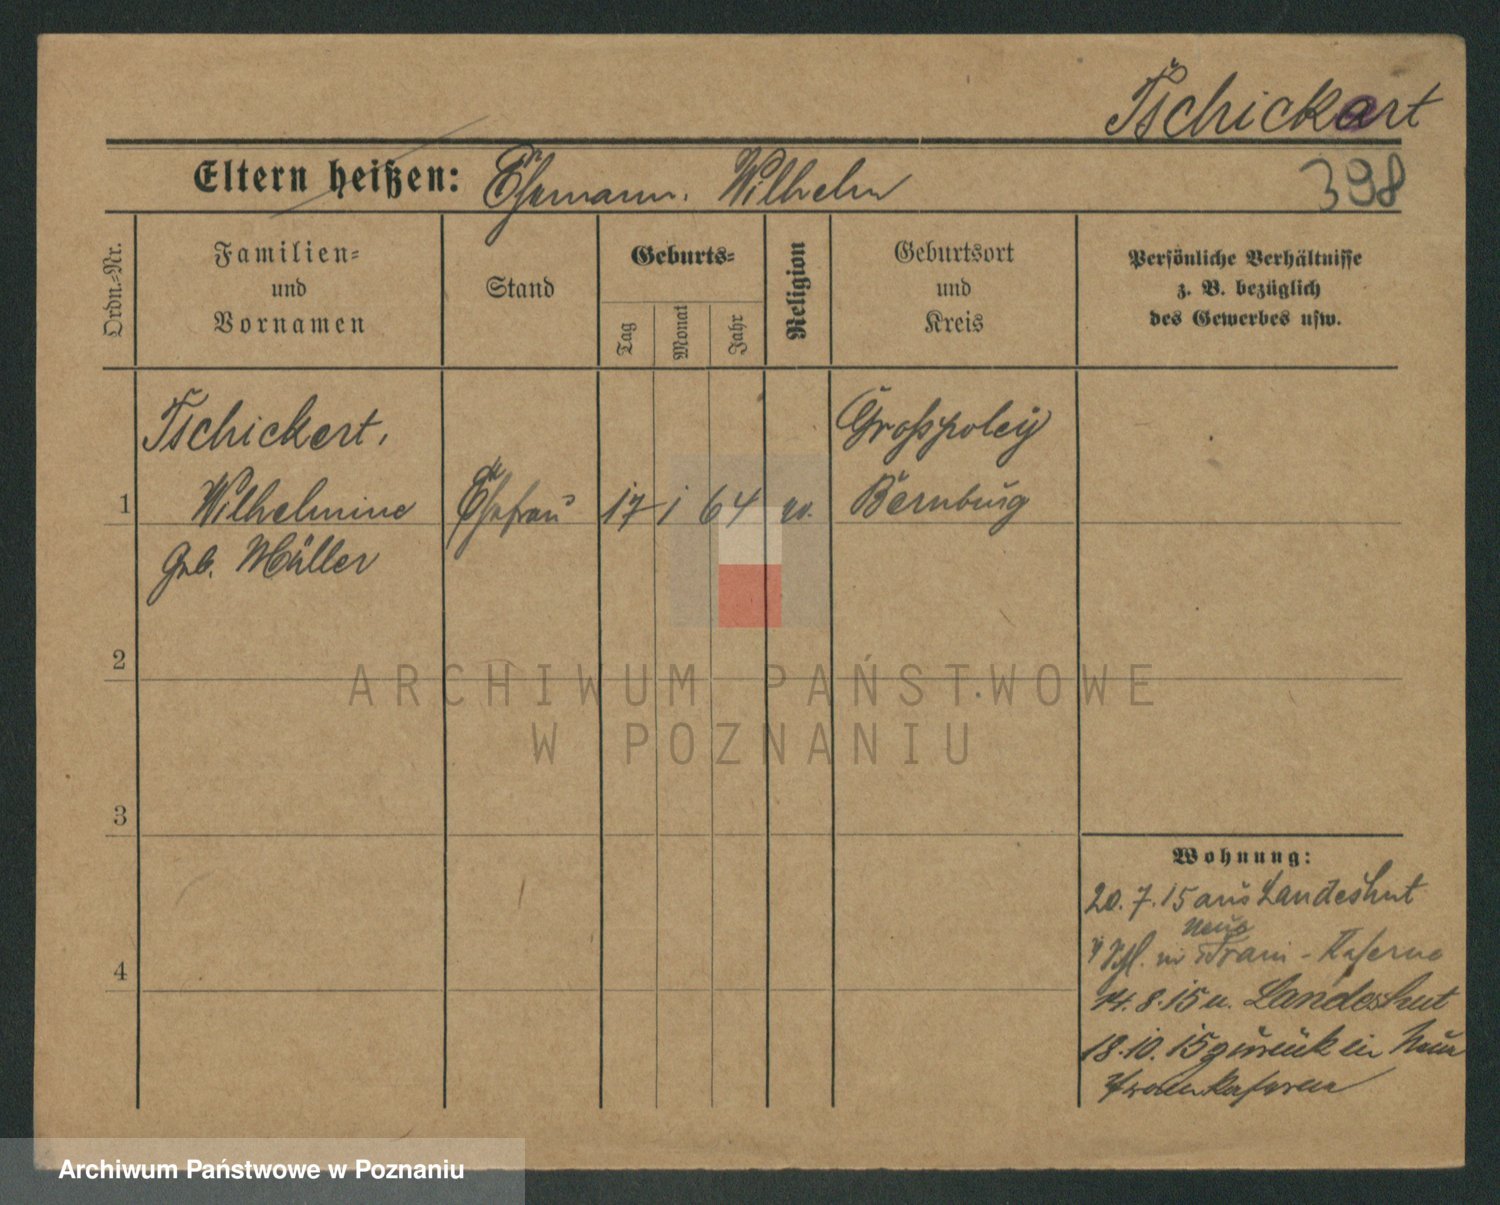 Tschickart
Eltern heißen: Ehemann. Wilhelm
398
Ordn.-Nr.
Familien-
und
Vornamen
Stand
Geburts-
Tag
Monat
Jahr
Religion
Geburtsort
und
Kreis
Persönliche Verhältnisse
z. B. bezüglich
des Gewerbes usw.
Tschickert,
Grosspoley
1 Wilhelmine Ehefrau 17 1 64 ev. Bernburg
geb. Müller
2
3
4
Wohnung:
20. 7. 15 aus Landeshut
neue
in Train-Kaserne
14. 8. 15 n. Landeshut
18. 10. 15 zurück in Neue
Train Kaserne
ARCHIWUM PAŃSTWOWE
W POZNANIU
Archiwum Państwowe w Poznaniu